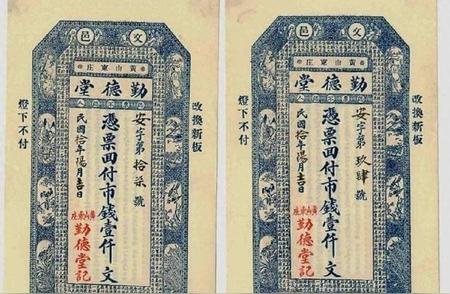 文邑
黃山東庄
勤德堂
改換新板
安字第拾柒號
憑票囬付市錢壹仟文
民國拾年陽月吉日
黃山東庄
勤德堂記
燈下不付
文邑
黃山東庄
勤德堂
改換新板
安字第玖肆號
憑票囬付市錢壹仟文
民國拾年陽月吉日
黃山東庄
勤德堂記
燈下不付